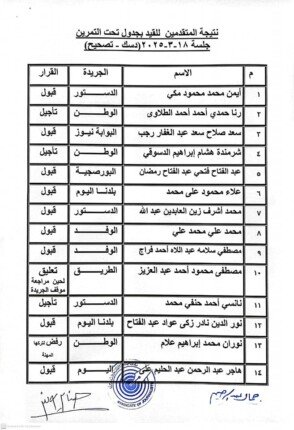 نتيجة المتقدمين للقيد بجدول تحت التمرين
جلسة ١٨-٣-٢٠٢٥ (دسك - تصحيح)
م الاســـم الجريدة القرار
١ أيمن محمد محمود مكي الدستور قبول
٢ رنا حمدي أحمد أحمد الطلاوى الوطن تأجيل
٣ سعد صلاح سعد عبد الغفار رجب البوابة نيوز قبول
٤ شرمندة هشام إبراهيم الدسوقي الوطن تأجيل
٥ عبد الفتاح فتحي عبد الفتاح رمضان البورصجية قبول
٦ علاء محمود على محمد بلدنا اليوم قبول
٧ محمد أشرف زين العابدين عبد الله الدستور قبول
٨ محمد علي محمد علي الوفد قبول
٩ مصطفي سلامه عبد اللاه أحمد فراج الوفد قبول
١٠ مصطفى محمود أحمد عبد العزيز الطريق تعليق
لحين مراجعة
موقف الجريدة
١١ نانسي أحمد حنفي محمد الدستور تأجيل
١٢ نور الدين نادر زكى عواد عبد الفتاح بلدنا اليوم قبول
١٣ نوران محمد إبراهيم علام الوطن رفض
المهنة
١٤ هاجر عبد الرحمن عبد الحليم اليوم قبول